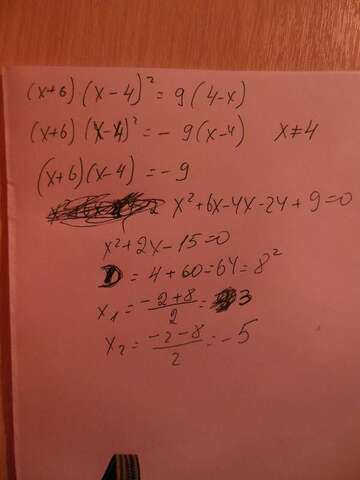 (x+6)(x-4)² = 9(4-x)
(x+6)(x-4)² = -9(x-4) x≠4
(x+6)(x-4) = -9
x²+6x-4x-24+9=0
x²+2x-15=0
D = 4+60=64=8²
x₁ = (-2+8)/2 = 3
x₂ = (-2-8)/2 = -5